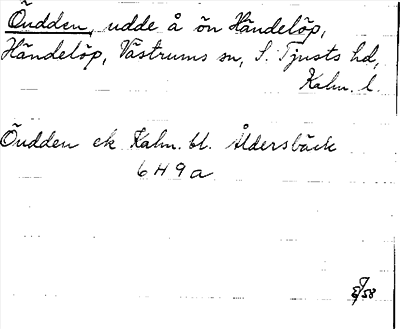 Öudden, udde å ön Händelöp,
Händelöp, Västrums sn, S. Tjusts hd,
Kalm. l.
Öudden ek Kalm. bl. Åldersbäck
6H9a
58